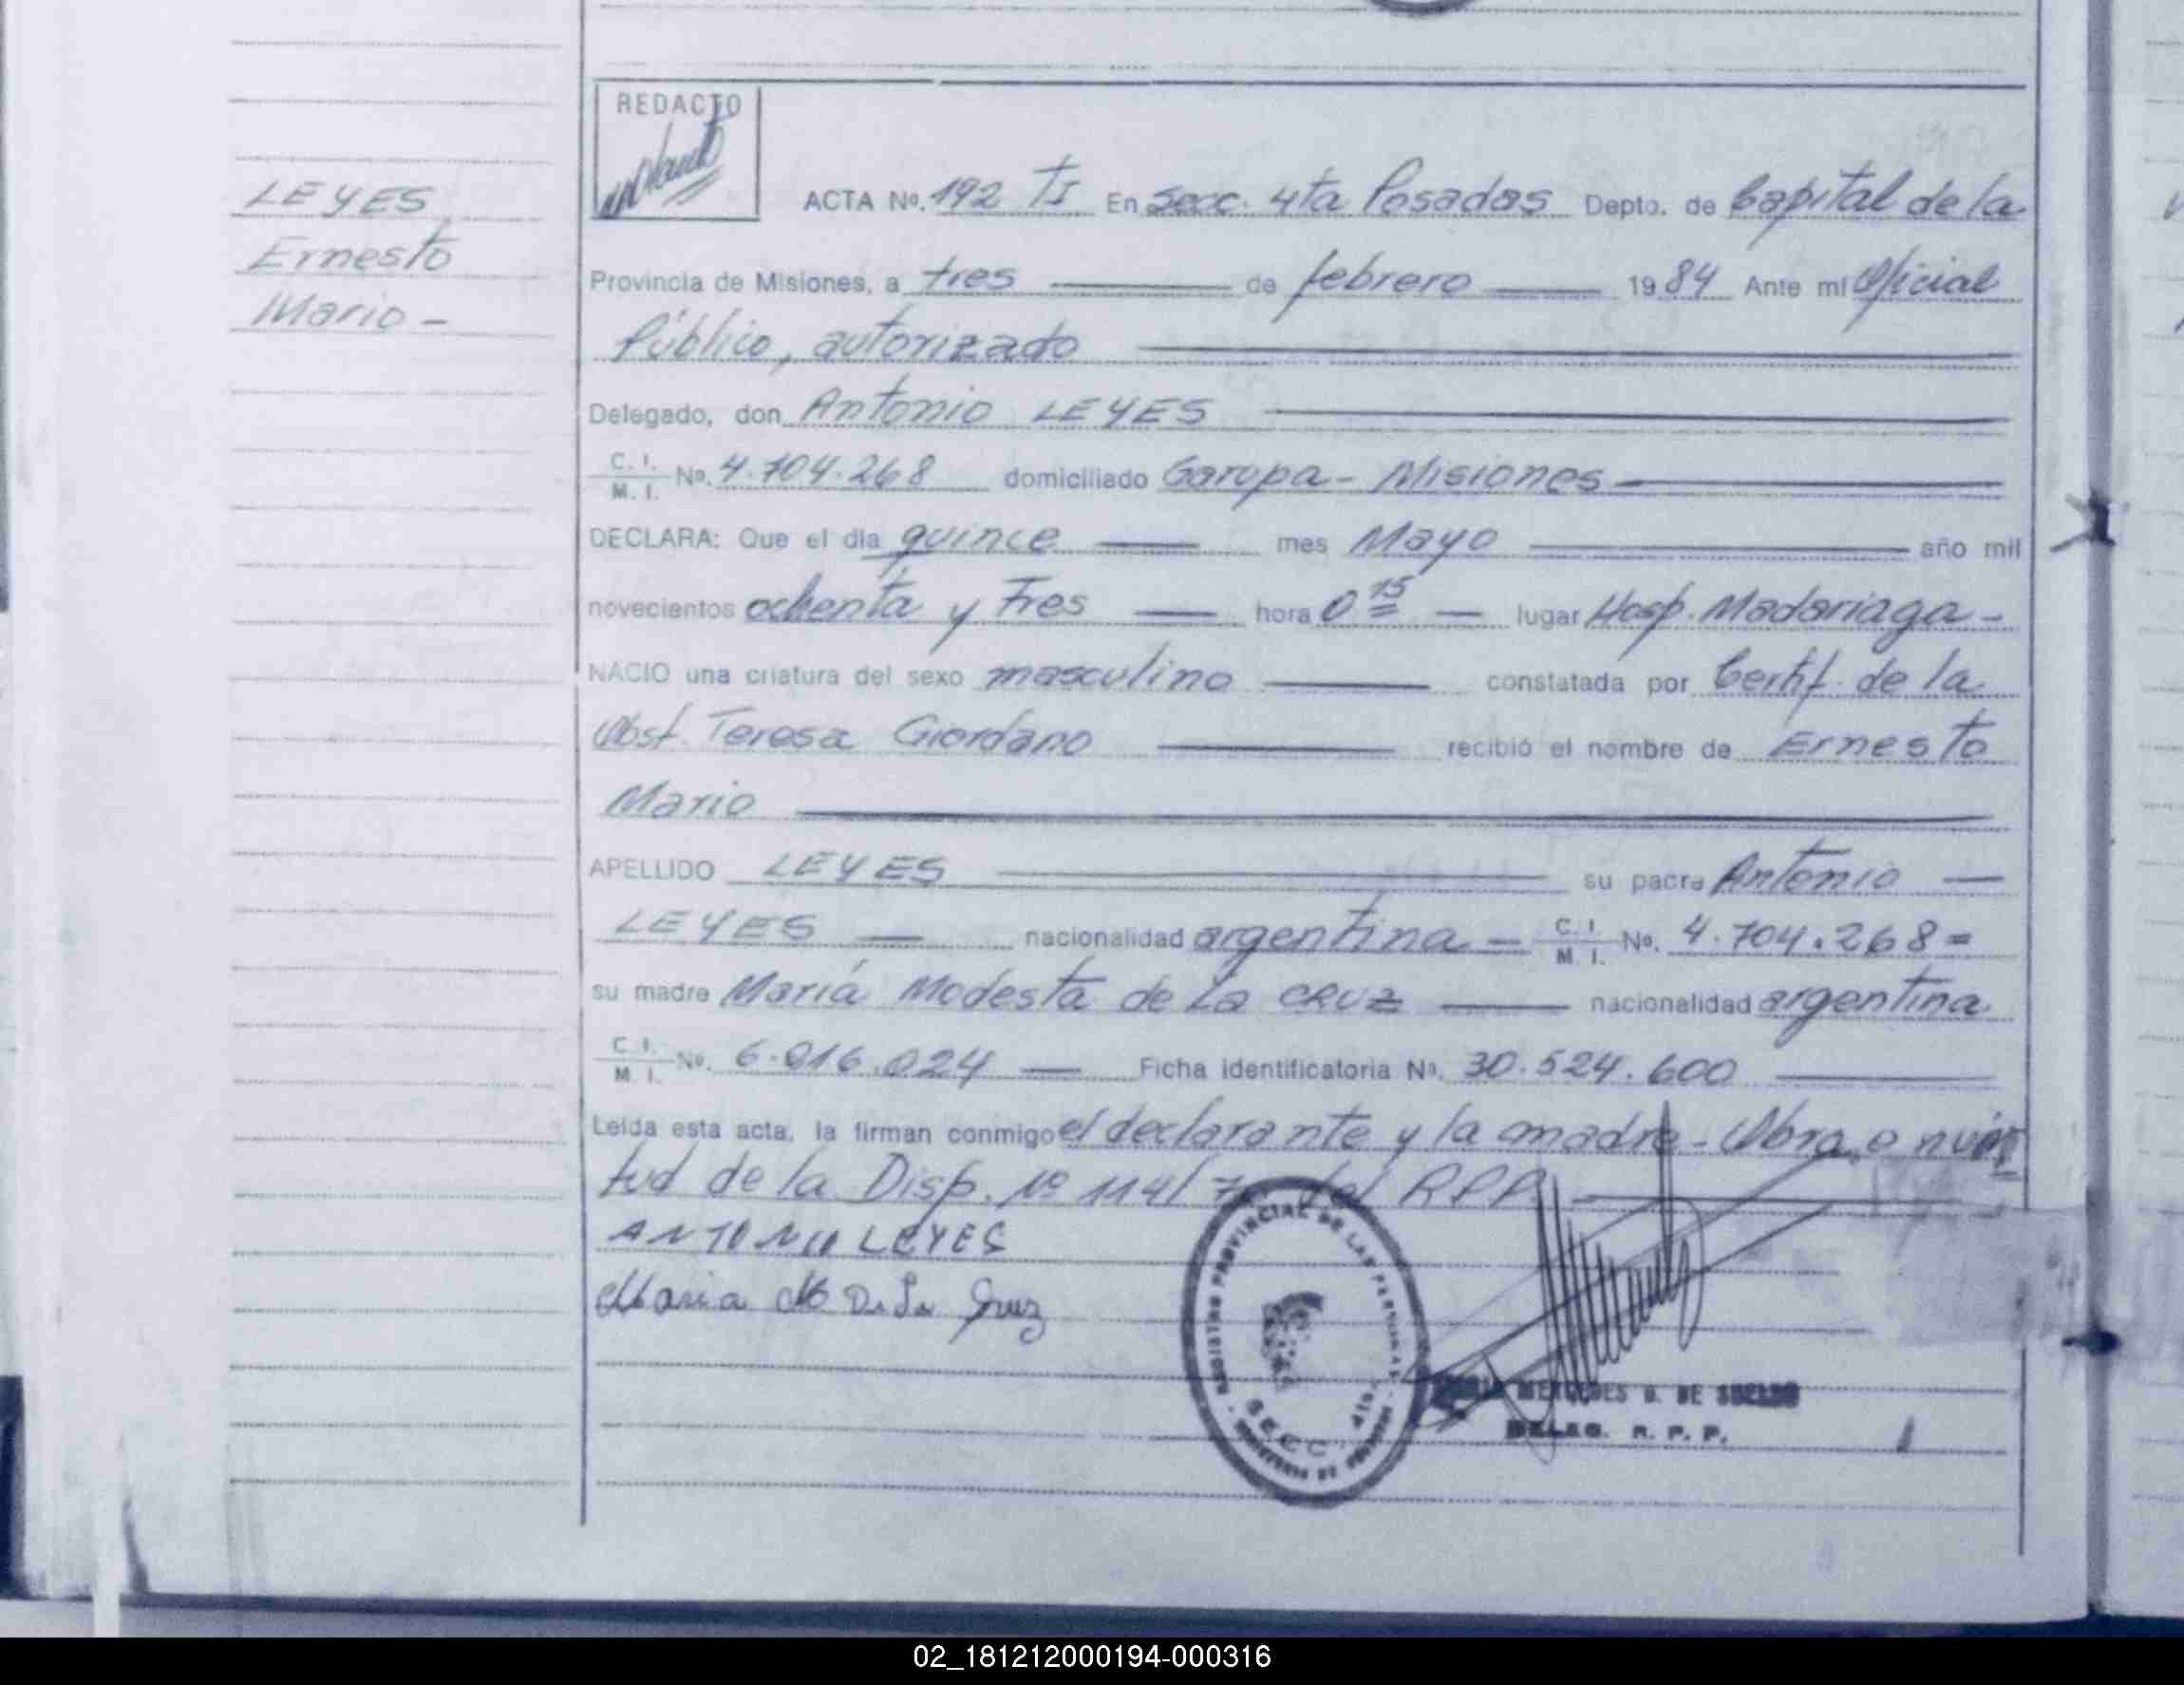 REDACTO
LEYES
Ernesto
Mario -
ACTA No. 192 TI En Secc. 4ta Posadas Depto. de Capital de la
Provincia de Misiones, a tres de febrero 1984 Ante mí Oficial
Público, autorizado
Delegado, don Antonio LEYES
C. I. M. I. No. 4.704.268 domiciliado Garupa - Misiones
DECLARA: Que el día quince mes Mayo año mil
novecientos ochenta y Tres hora 0 15 lugar Hosp. Madariaga -
NACIO una criatura del sexo masculino constatada por Certif. de la
Obst. Teresa Giordano recibió el nombre de Ernesto
Mario
APELLIDO LEYES su padre Antonio
LEYES nacionalidad argentina - C. I. M. I. No. 4.704.268 =
su madre María Modesta de La CRUZ nacionalidad argentina
C. I. M. I. No. 6.016.024 Ficha identificatoria No. 30.524.600
Leída esta acta, la firman conmigo el declarante y la madre -
tud de la Disp. Nº 114/ del RPP
ANTONIO LEYES
Maria M De La Cruz
REGISTRO PROVINCIAL DE LAS PERSONAS
SECC. 4ta.
MERCEDES G. DE
DELEG. R. P. P.
02_181212000194-000316